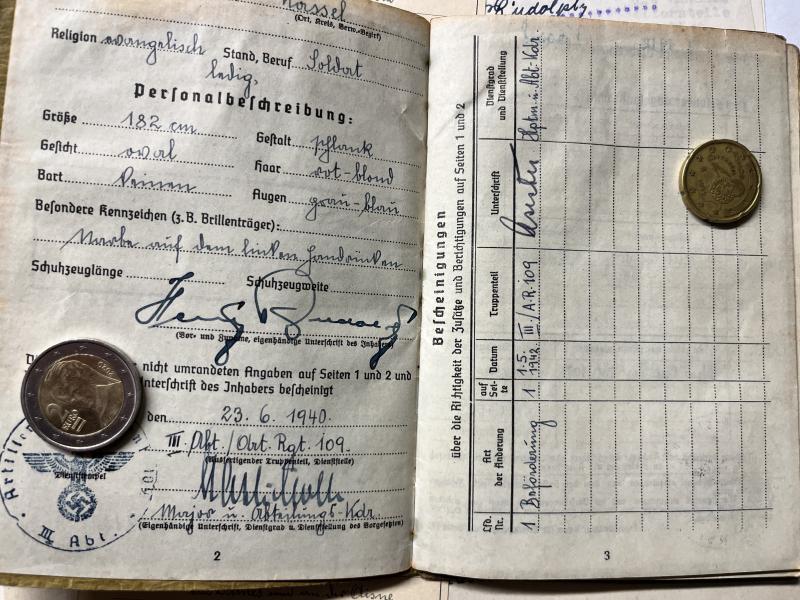 Kassel
(Ort, Kreis, Verw.-Bezirk)
Religion evangelisch Stand, Beruf Soldat
ledig,
Personalbeschreibung:
Größe 182 cm Gestalt schlank
Gesicht oval Haar rot-blond
Bart Keinen Augen grau-blau
Besondere Kennzeichen (z.B. Brillenträger):
Narbe auf dem linken Handrücken
Schuhzeuglänge Schuhzeugweite
Rudolph
(Vor- und Zuname, eigenhändige Unterschrift des Inhabers)
nicht umrandeten Angaben auf Seiten 1 und 2 und
Unterschrift des Inhabers bescheinigt
den 23.6.1940.
III. Abt./Art. Rgt. 109.
(Ausfertigender Truppenteil, Dienststelle)
Dienststempel
III Abt.
Major u. Abteilungs-Kdr.
(Eigenhändige Unterschrift, Dienstgrad u. Dienststellung des Vorgesetzten)
2
Bescheinigungen
über die Richtigkeit der Zusätze und Berichtigungen auf Seiten 1 und 2
Lfd. Nr. Art der Änderung auf Sei- te Datum Truppenteil Unterschrift Dienstgrad und Dienststellung
1 Beförderung 1 1.5. 1942. III./A.R.109 Hptm. u. Abt. Kdr.
3
Rudolph